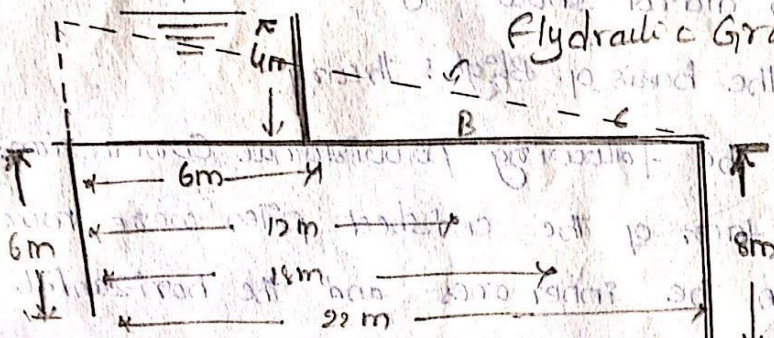 Hydraulic Gra
4m
B C
6m
6m 12m 8m
18m
22 m